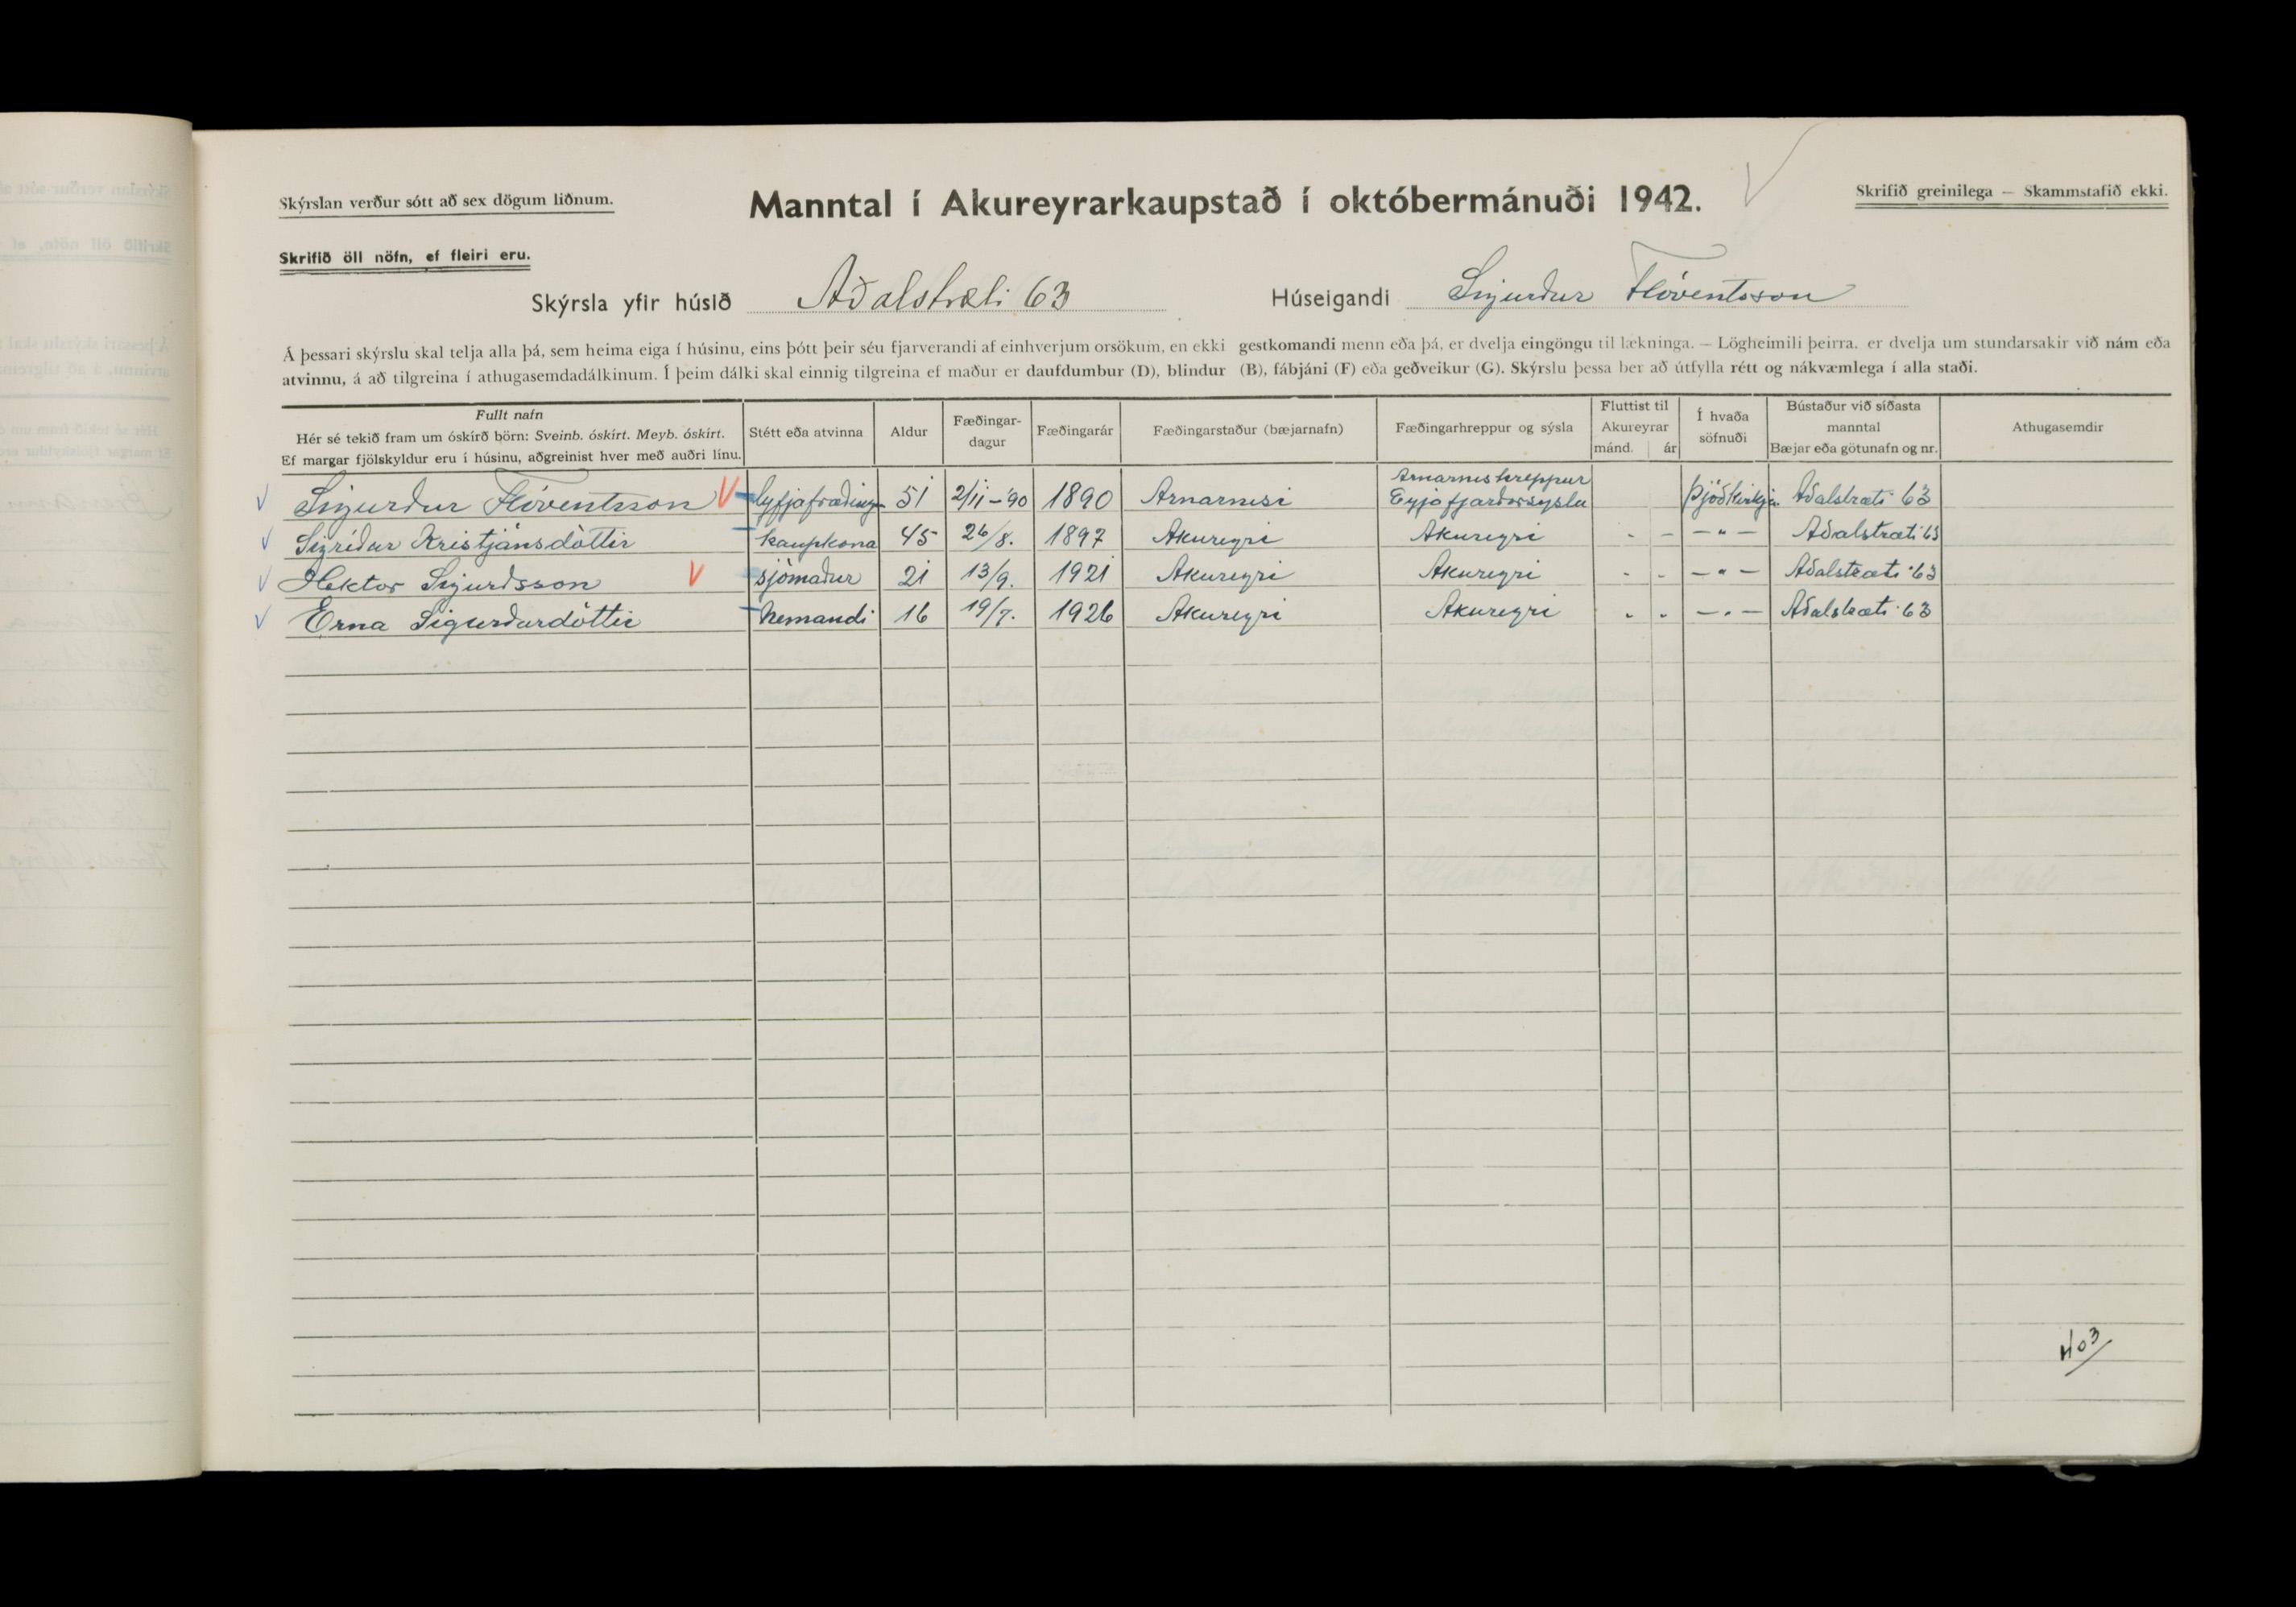 Skýrslan verður sótt að sex dögum liðnum.
Manntal í Akureyrarkaupstað í októbermánuði 1942.
Skrifið greinilega — Skammstafið ekki.
Skrifið öll nöfn, ef fleiri eru.
Skýrsla yfir húsið Aðalstræti 63 Húseigandi Sigurður Flóventsson
Á þessari skýrslu skal telja alla þá, sem heima eiga í húsinu, eins þótt þeir séu fjarverandi af einhverjum orsökum, en ekki gestkomandi menn eða þá, er dvelja eingöngu til lækninga. — Lögheimili þeirra, er dvelja um stundarsakir við nám eða
atvinnu, á að tilgreina í athugasemdadálkinum. Í þeim dálki skal einnig tilgreina ef maður er daufdumbur (D), blindur (B), fábjáni (F) eða geðveikur (G). Skýrslu þessa ber að útfylla rétt og nákvæmlega í alla staði.
Fullt nafn
Hér sé tekið fram um óskírð börn: Sveinb. óskírt. Meyb. óskírt.
Ef margar fjölskyldur eru í húsinu, aðgreinist hver með auðri línu.
Stétt eða atvinna
Aldur
Fæðingar-
dagur
Fæðingarár
Fæðingarstaður (bæjarnafn)
Fæðingarhreppur og sýsla
Fluttist til
Akureyrar
mánd. ár
Í hvaða
söfnuði
Bústaður við síðasta
manntal
Bæjar eða götunafn og nr.
Athugasemdir
Sigurður Flóventsson V lyfjafræðingur 51 2/11-'90 1890 Arnarnesi Arnarneshreppur
Eyjafjarðarsýslu Þjóðkirkju Aðalstræti 63
Sigríður Kristjánsdóttir kaupkona 45 26/8. 1897 Akureyri Akureyri - - — " — Aðalstræti 63
Hektor Sigurðsson V sjómaður 21 13/9. 1921 Akureyri Akureyri - - — " — Aðalstræti 63
Erna Sigurðardóttir Nemandi 16 19/7. 1926 Akureyri Akureyri - - — " — Aðalstræti 63
403